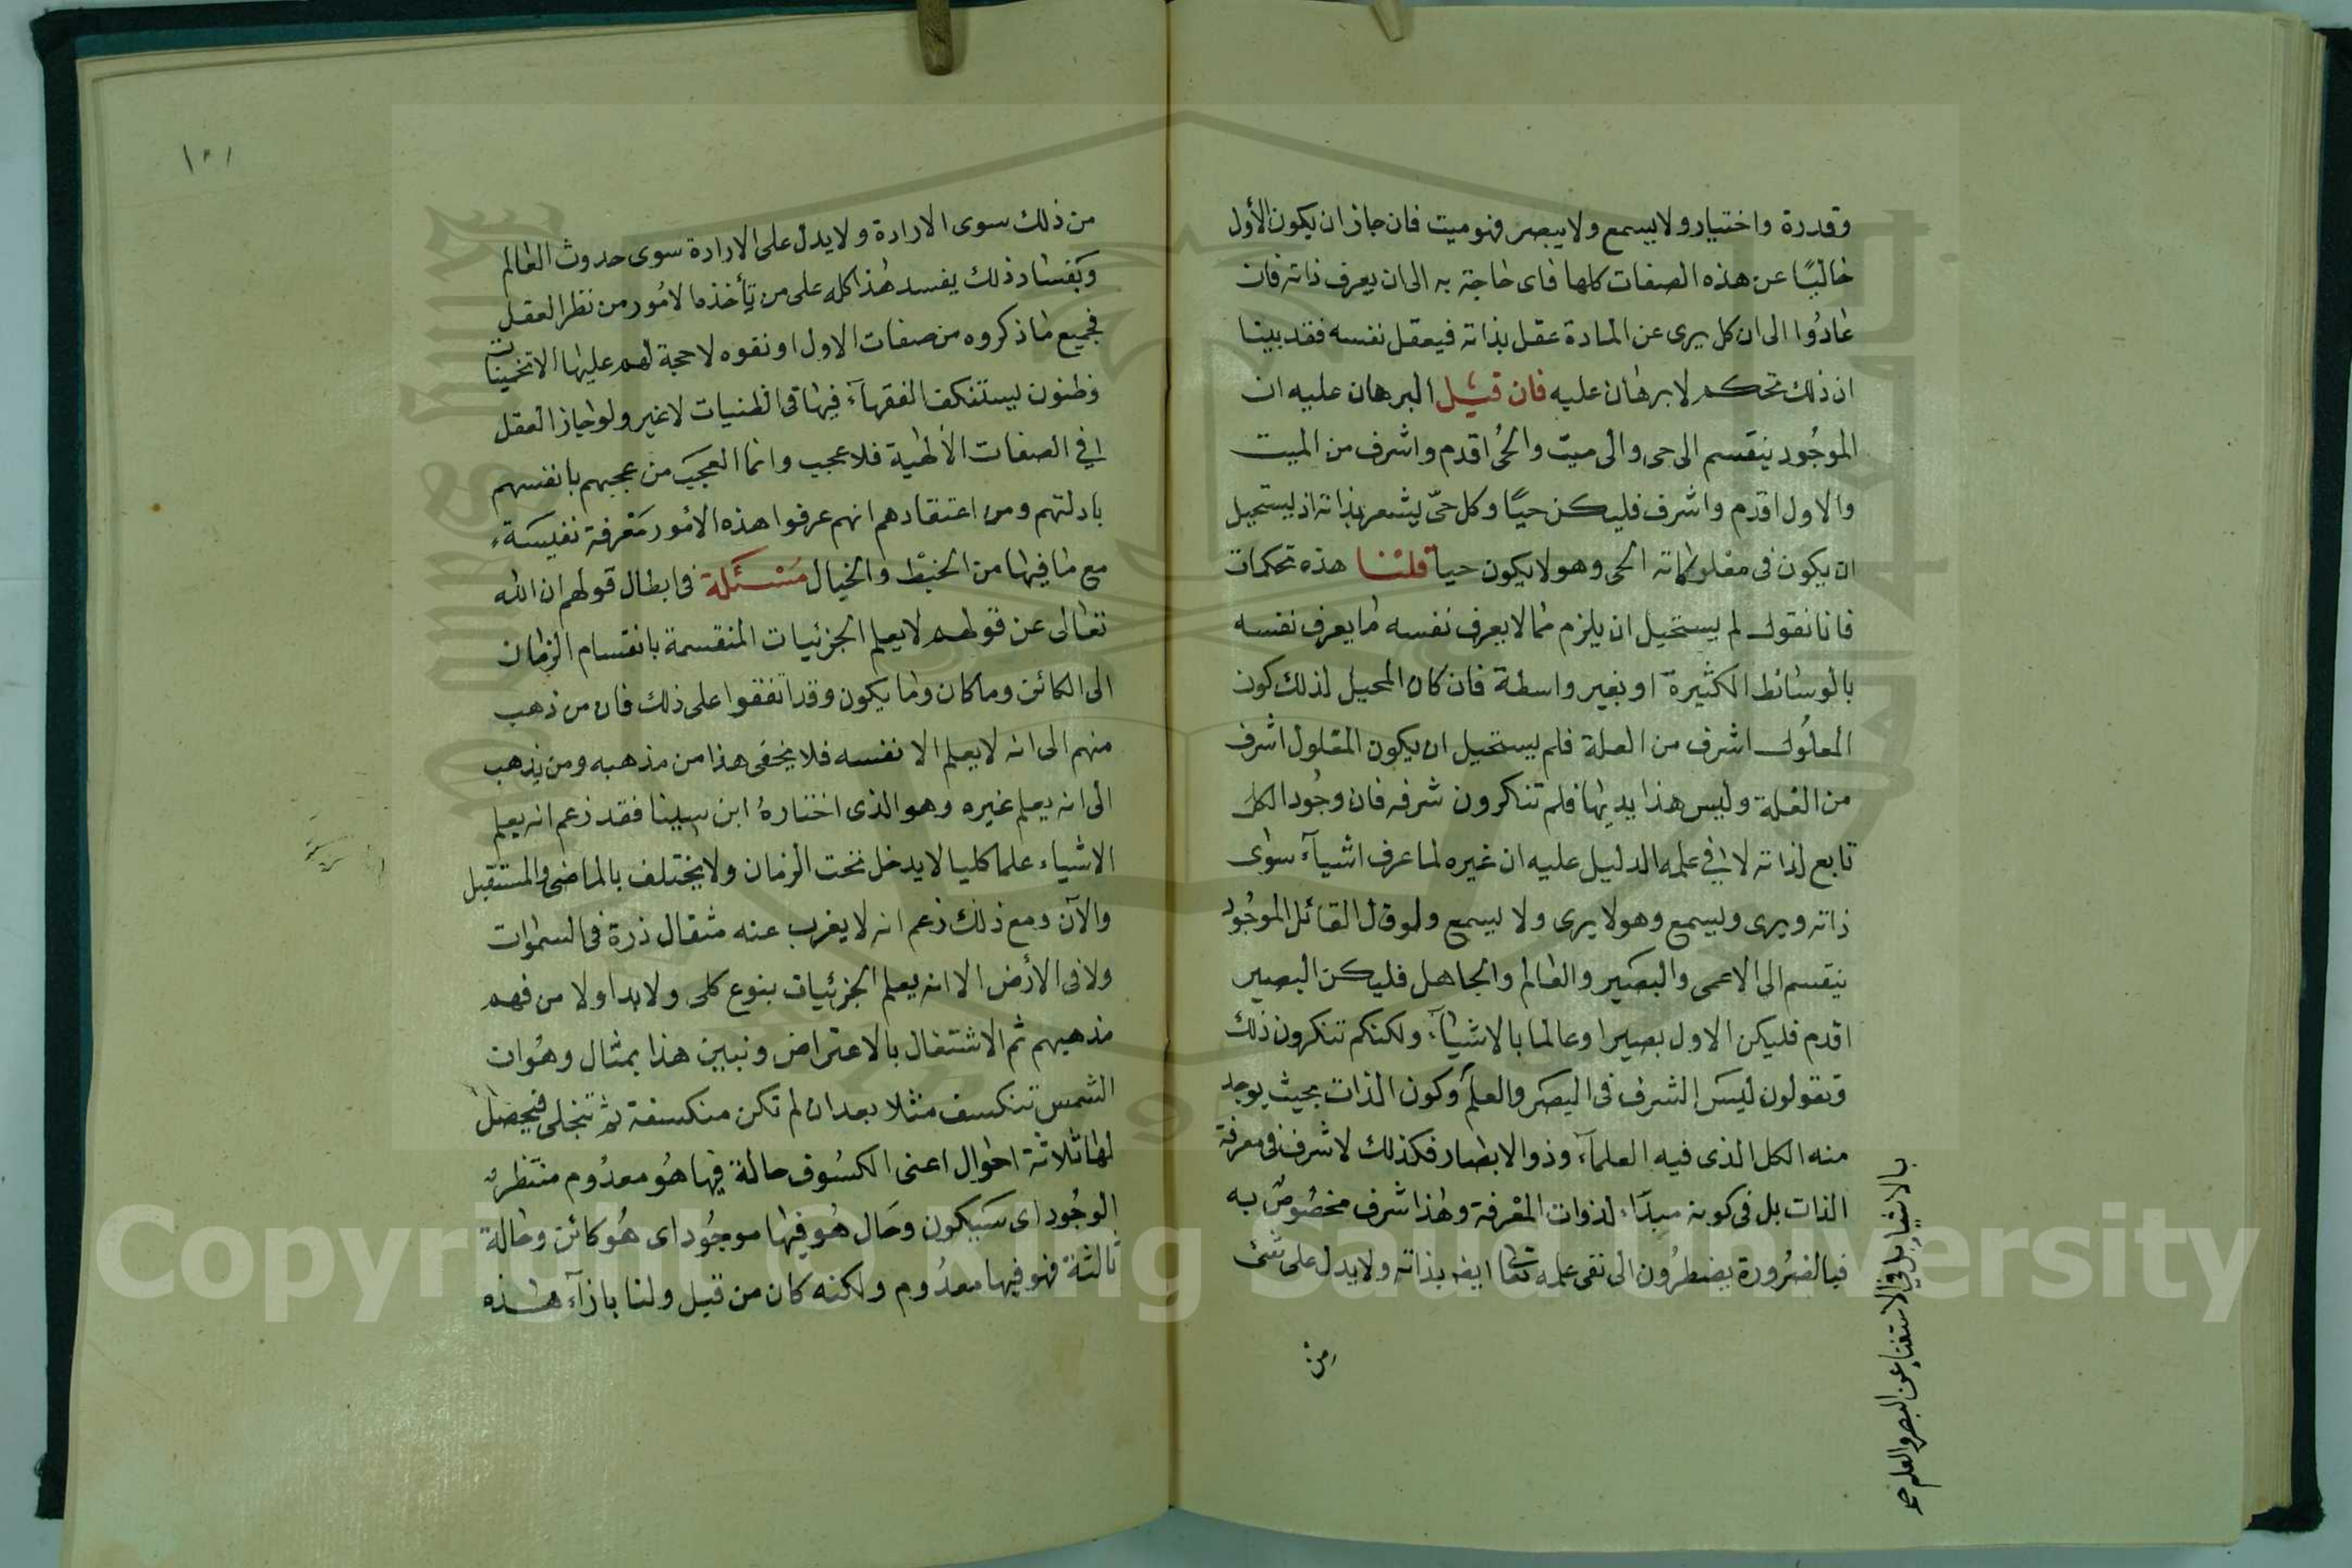 وقدرة واختيار ولا يسمع ولا يبصر فهو ميت فان جاز ان يكون الأول
خاليًا عن هذه الصفات كلها فاى حاجة به الى ان يعرف ذاته فان
عادُوا الى ان كل برى عن المادة عقل بذاته فيعقل نفسه فقد بينا
ان ذلك تحكم لا برهان عليه فان قيل البرهان عليه ان
الموجُود ينقسم الى حى والى ميت والحُى اقدم واشرف من الميت
والاول اقدم واشرف فليكن حيًا وكل حىّ يشعر بذاته اذ يستحيل
ان يكون فى معلولاته الحى وهو لا يكون حيا قلنا هذه تحكمات
فانا نقول لم يستحيل ان يلزم مما لا يعرف نفسه ما يعرف نفسه
بالوسائط الكثيرة او بغير واسطة فان كان المحيل لذلك كون
المعلُول اشرف من العلة فلم يستحيل ان يكون المعلول اشرف
من العلة وليس هذا بديهيا فلم تنكرون شرفه فان وجُود الكل
تابع لذاته لا في علمه الدليل عليه ان غيره لما عرف اشيآء سوى
ذاته ويرى ويسمع وهو لا يرى ولا يسمع ولو قال القائل الموجُود
ينقسم الى الاعمى والبصير والعالم والجاهل فليكن البصير
اقدم فليكن الاول بصيرا وعالما بالاشيآء ولكنكم تنكرون ذلك
وتقولون ليس الشرف فى البصر والعلم وكون الذات بحيث يوجد
منه الكل الذى فيه العلمآء وذو الابصار فكذلك لا شرف فى معرفة
الذات بل فى كونه مبدآء لذوات المعْرفة وهذا شرف مخصُوص به
فبالضرُورة يضطرُون الى نفى علمه تعالى ايضا بذاته ولا يدل على شئ
من
بالاشياء بل في الاستغناء عن البصر والعلم صح
١٠١
من ذلك سوى الارادة ولا يدل على الارادة سوى حدوث العالم
وبفساد ذلك يفسد هذا كله على من يأخذ ما لامُور من نظر العقل
فجميع ما ذكروه من صفات الاول او نفوه لا حجة لهم عليها الا تخمينات
وظنون يستنكف الفقهآء فيها فى الظنيات لا غير ولو جاز العقل
في الصفات الالهية فلا عجيب وانما العجيَب من عجبهم بانفسهم
بادلتهم ومن اعتقادهم انهم عرفوا هذه الامُور مَعْرفة نفيسَة
مع ما فيها من الخبْط والخيال مَسْئَلة فى ابطال قولهم ان الله
تعالى عن قولهم لا يعلم الجزئيات المنقسمة بانقسام الزمان
الى الكائن وما كان وما يكون وقد اتفقوا على ذلك فان من ذهب
منهم الى انه لا يعلم الا نفسه فلا يخفى هذا من مذهبه ومن يذهب
الى انه يعلم غيره وهو الذى اختارهُ ابن سينا فقد زعم انه يعلم
الاشياء علما كليا لا يدخل تحت الزمان ولا يختلف بالماضى والمستقبل
والآن ومع ذلك زعم انه لا يغرب عنه مثقال ذرة فى السموات
ولا فى الأرض الا انه يعلم الجزئيات بنوع كلى ولا بد اولا من فهم
مذهبهم ثم الاشتغال بالاعتراض ونبين هذا بمثال وهُو ان
الشمس تنكسف مثلا بعد ان لم تكن منكسفة ثم تنجلى فيحصل
لها ثلاثة احوال اعنى الكسُوف حالة فيها هُو معدُوم منتظر
الوجُود اى سَيكون وحَال هُو فيها موجُود اى هُو كائن وحالة
ثالثة فهو فيها معدُوم ولكنه كان من قبل ولنا بازآء هذه
Copyright © King Saud University